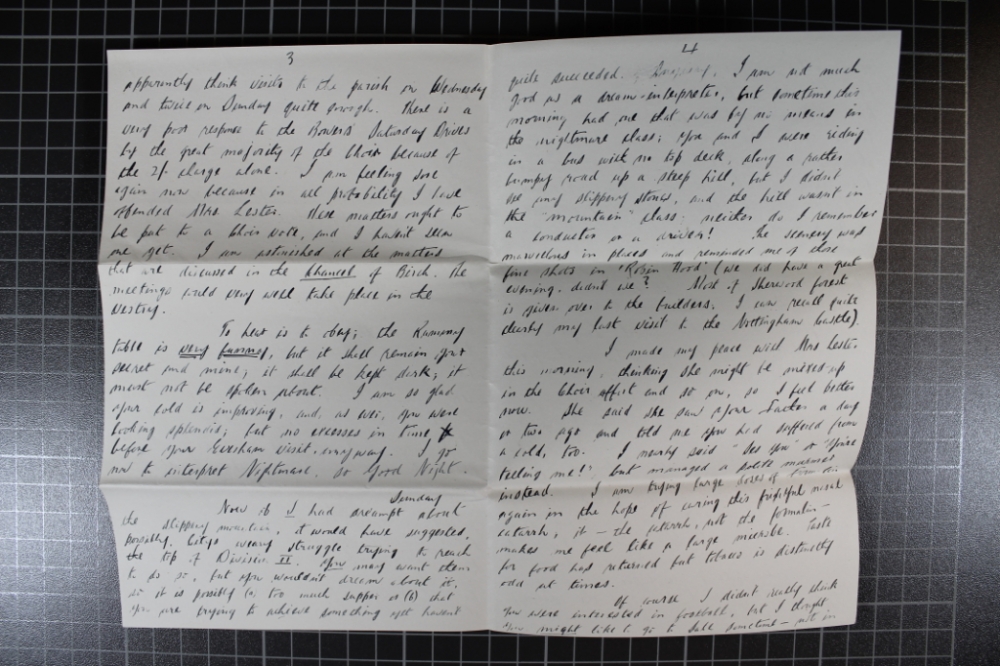 3
apparently think visits to the parish on Wednesday
and twice on Sunday quite enough. There is a
very poor response to the Bowers' Saturday Drives
by the great majority of the Choir because of
the 2/- charge alone. I am feeling sore
again now because in all probability I have
offended Mrs Lester. These matters ought to
be put to a Choir vote, and I haven't seen
one yet. I am astonished at the matters
that are discussed in the Chancel of Birch. The
meetings could very well take place in the
Vestry.
To hear is to obey; the Rummy
table is very funny, but it shall remain your
secret and mine; it shall be kept dark; it
must not be spoken about. I am so glad
your cold is improving, and, as ever, you were
looking splendid; but no excesses in time
before your Evesham visit - anyway. I go
now to interpret Nightmare. So Good Night.
Sunday
Now if I had dreampt about
the slipping mountain, it would have suggested,
possibly, City's weary struggle trying to reach
the top of Division II. You may want them
to do so, but you wouldn't dream about it,
so it is possibly (a) too much supper or (b) that
you are trying to achieve something yet haven't
4
quite succeeded. I am not much
good as a dream-interpreter, but sometime this
morning had one that was by no means in
the nightmare class; you and I were riding
in a bus with no top deck, along a rather
bumpy road up a steep hill, but I didn't
see any slipping stones, and the hill wasn't in
the "mountain" class; neither do I remember
a conductor or a driver! The scenery was
marvellous in places and reminded me of those
fine shots in "Robin Hood" (we did have a great
evening, didn't we? Most of Sherwood forest
is given over to the builders. I can recall quite
clearly my last visit to the Nottingham Castle).
I made my peace with Mrs Lester
this morning, thinking she might be mixed up
in the Choir effort and so on, so I feel better
now. She said she saw your Father a day
or two ago and told me you had suffered from
a cold, too. I nearly said "Yes you" or "You're
telling me!" but managed a polite
instead. I am trying large doses of
again in the hope of curing this frightful nasal
catarrh, it - the catarrh, not the formalin -
makes me feel like a large microbe. Taste
for food has returned but tobacco is distinctly
odd at times.
Of course I didn't really think
you were interested in football, but I thought
you might like to go to Sale sometime - not in